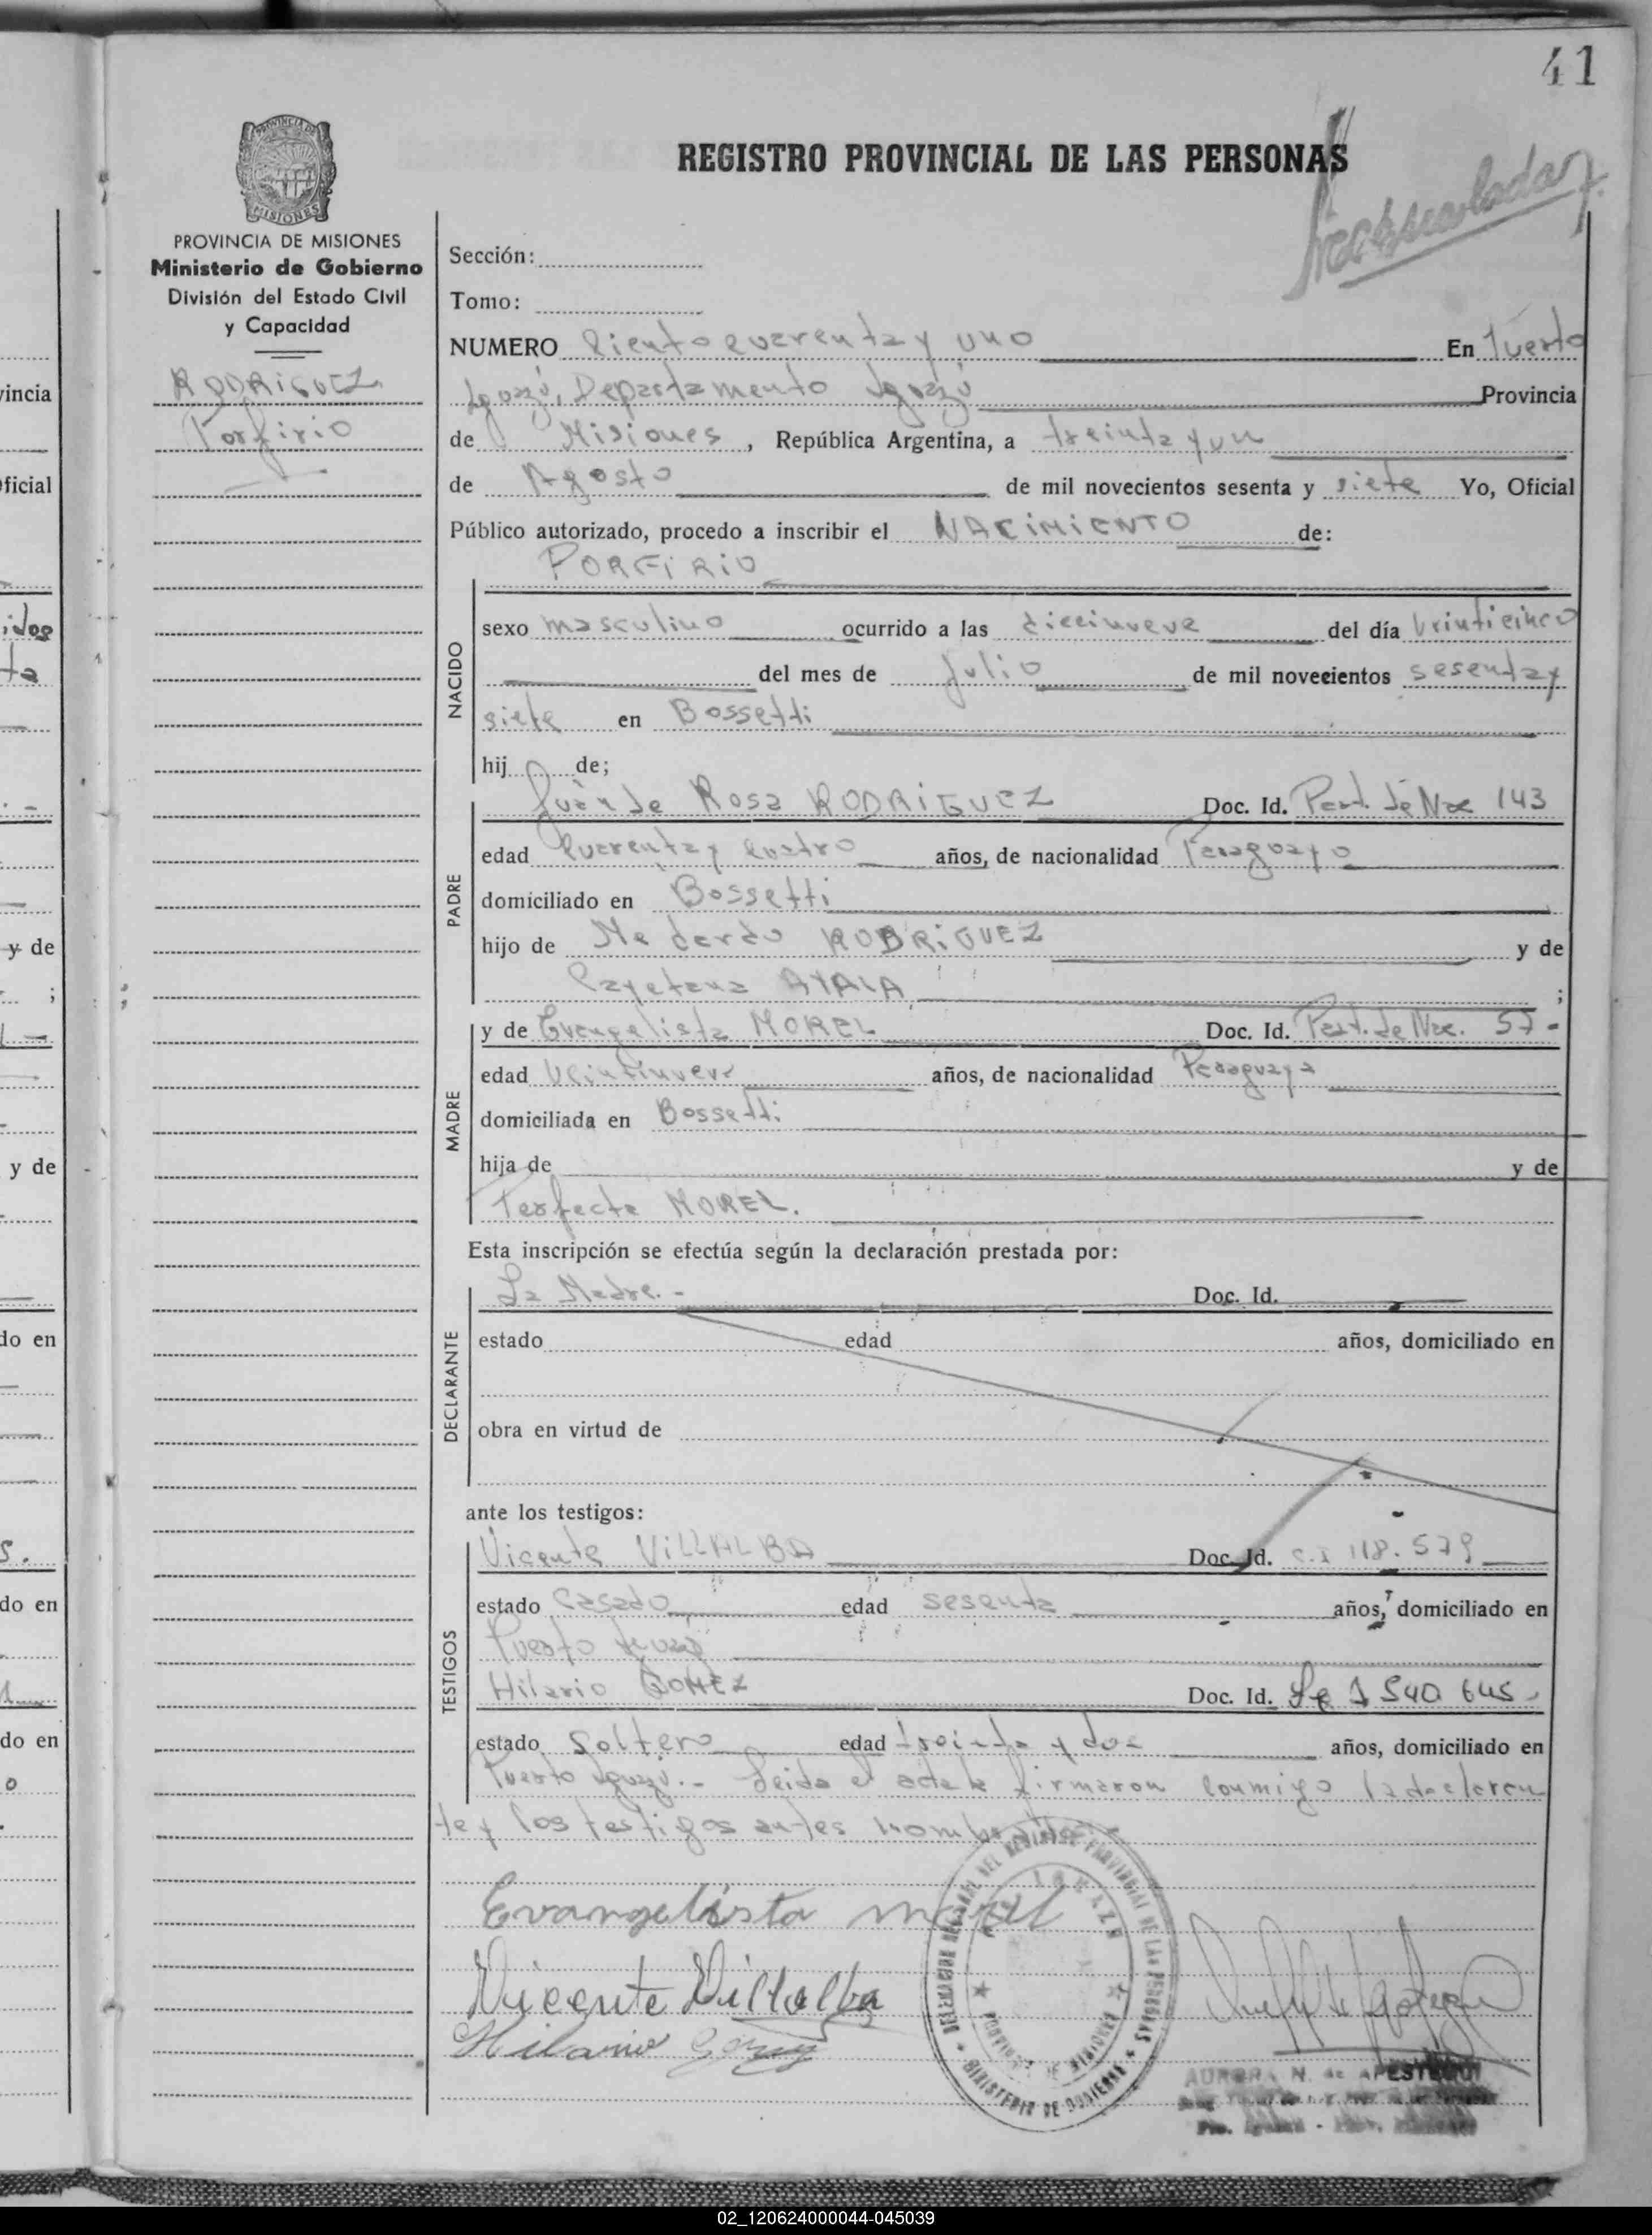 41
REGISTRO PROVINCIAL DE LAS PERSONAS
PROVINCIA DE
MISIONES
PROVINCIA DE MISIONES
Ministerio de Gobierno
División del Estado Civil
y Capacidad
RODRIGUEZ
Porfirio
Sección:
Tomo:
NUMERO Ciento cuarenta y uno En Puerto
Iguazú, Departamento Iguazú Provincia
de Misiones, República Argentina, a treinta y un
de Agosto de mil novecientos sesenta y siete Yo, Oficial
Público autorizado, procedo a inscribir el NACIMIENTO de:
PORFIRIO
NACIDO
sexo masculino ocurrido a las diecinueve del día veinticinco
del mes de Julio de mil novecientos sesenta y
siete en Bossetti
hij de;
PADRE
Juan de Rosa RODRIGUEZ Doc. Id. Part. de Nac 143
edad cuarenta y cuatro años, de nacionalidad Paraguayo
domiciliado en Bossetti
hijo de Medardo RODRIGUEZ y de
Cayetana AYALA ;
MADRE
y de Evangelista MOREL Doc. Id. Part. de Nac. 57-
edad veintinueve años, de nacionalidad Paraguaya
domiciliada en Bossetti
hija de y de
Perfecta MOREL.
Esta inscripción se efectúa según la declaración prestada por:
DECLARANTE
La Madre.- Doc. Id.
estado edad años, domiciliado en
obra en virtud de
ante los testigos:
TESTIGOS
Vicente VILLALBA Doc. Id. C.I 118.579
estado Casado edad sesenta años, domiciliado en
Puerto Iguazú
Hilario GOMEZ Doc. Id. 1 540 645
estado Soltero edad treinta y dos años, domiciliado en
Puerto Iguazú.- Leida el acta la firmaron conmigo la declaran
te y los testigos antes nombrados
Evangelista morel
Vicente Villalba
Hilario Gomez
MINISTERIO DE GOBIERNO
AURORA N. de APESTEGUI
vincia
ficial
y de
;
y de
do en
do en
do en
02_120624000044-045039